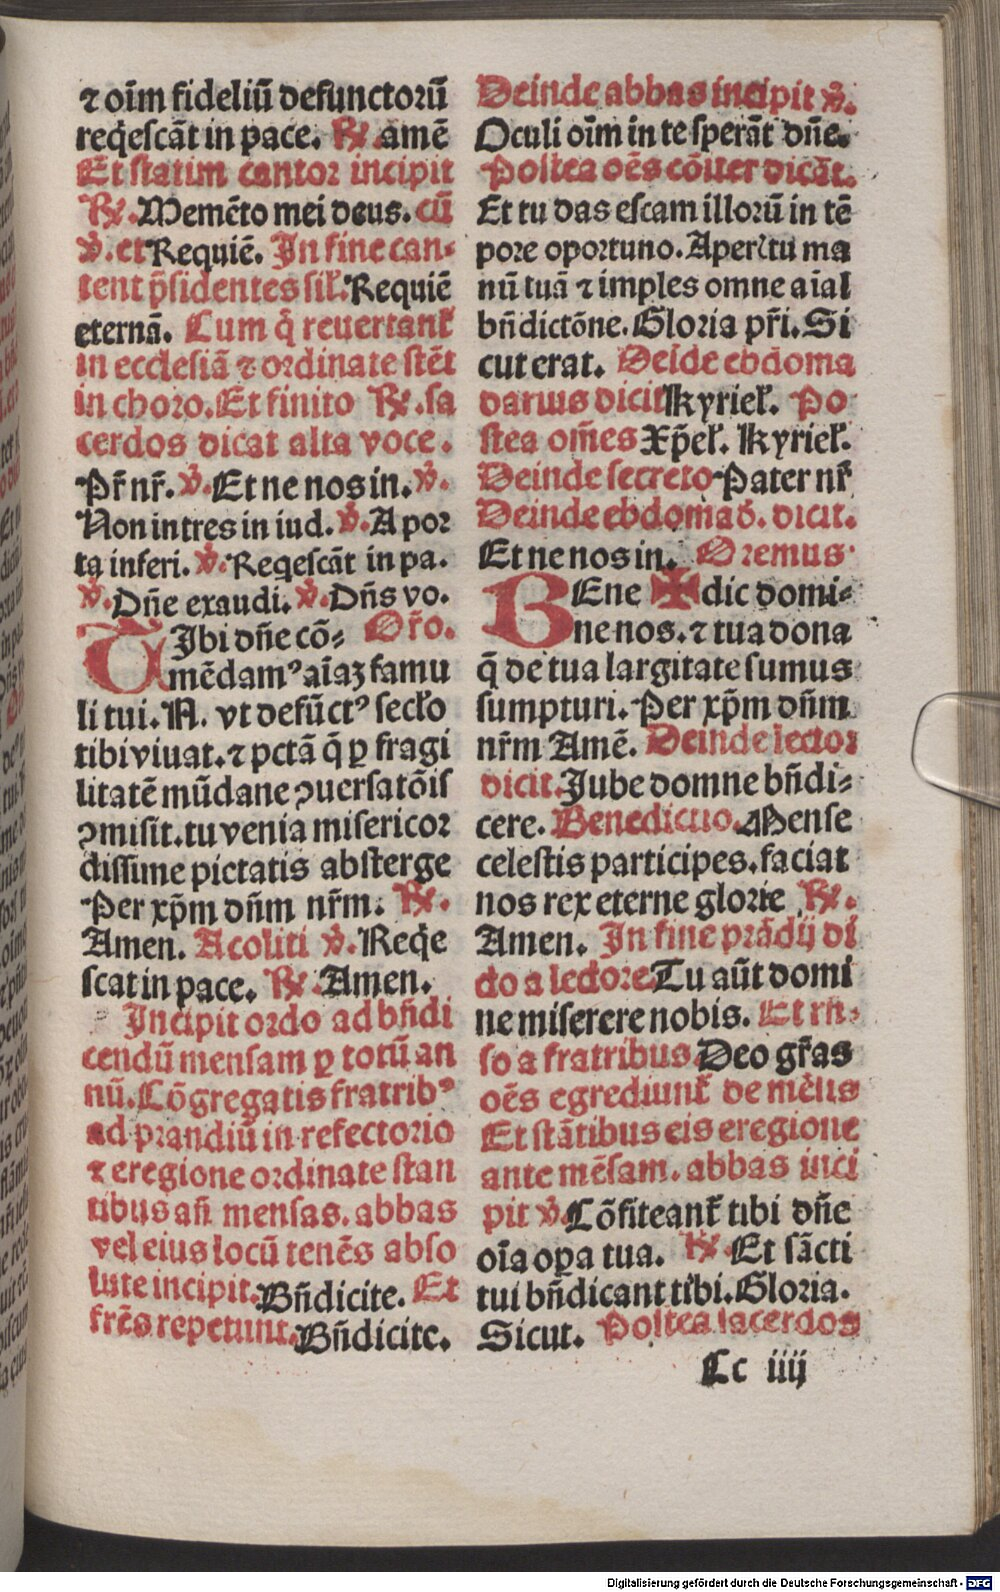 ⁊ oı̄m fideliū defunctorū
req̄escāt in pace. ℟. amē
Et statim cantor incipit
℟. Memēto mei deus. cū
℣. et Requiē. In fine can⸗
tent p̄sidentes sił. Requiē
eternā. Cum q̄ reuertant᷑
in ecclesiā ⁊ ordinate stēt
in choro. Et finito ℟. sa
cerdos dicat alta voce.
Pr̄ nr̄. ℣. Et ne nos in. ℣.
Non intres in iud. ℣. A por
ta inferi. ℣. Reqescāt in pa.
℣. Dn̄e exaudi. ℣. Dn̄s vo.
TIbi dn̄e cō⸗ Or̄o.
mēdamꝰ aı̄aꝫ famu
li tui. N. vt defūctꝰ secło
tibi viuat. ⁊ pctā q̄ ꝑ fragi
litatē mūdane ꝯuersatōis
ꝯmisit. tu venia misericor
dissime pietatis absterge
Per xp̄m dn̄m nr̄m. ℟.
Amen. Acoliti ℣. Req̄e
scat in pace. ℟. Amen.
Incipit ordo ad bn̄di
cendū mensam ꝑ totū an
nū. Cōgregatis fratribꝰ
ad prandiū in refectorio
⁊ eregione ordinate stan
tibus an̄ mensas. abbas
vel eius locū tenēs abso
lute incipit. Bn̄dicite. Et
frēs repetunt. Bn̄dicite.
Deinde abbas incipit ℣.
Oculi oı̄m in te sperāt dn̄e.
Postea oēs cōuer dicāt.
Et tu das escam illorū in tē
pore oportuno. Aperi tu ma
nū tuā ⁊ imples omne aı̄al
bn̄dictōne. Gloria pr̄i. Si
cut erat. Deı̄de ebdoma
darius dicit Kyrieł. Po
stea om̄es Xp̄eł. Kyrieł.
Deinde secreto Pater nr̄
Deinde ebdomad. dicit.
Et ne nos in. Oremus
BEne ✠ dic domi⸗
ne nos. ⁊ tua dona
q̄ de tua largitate sumus
sumpturi. Per xp̄m dn̄m
nr̄m Amē. Deinde lector
dicit. Jube domne bn̄di⸗
cere. Benedictio. Mense
celestis participes. faciat
nos rex eterne glorie ℟.
Amen. In fine prādij di
cto a lectore Tu aūt domi
ne miserere nobis. Et rn̄⸗
so a fratribus Deo gr̄as
oēs egrediunt᷑ de mēsis
Et stātibus eis eregione
ante mēsam. abbas inci
pit ℣. Cōfiteant᷑ tibi dn̄e
oı̄a oꝑa tua. ℟. Et sācti
tui bn̄dicant tibi. Gloria.
Sicut. Postea sacerdos
Cc iiij
Digitalisierung gefördert durch die Deutsche Forschungsgemeinschaft - DFG